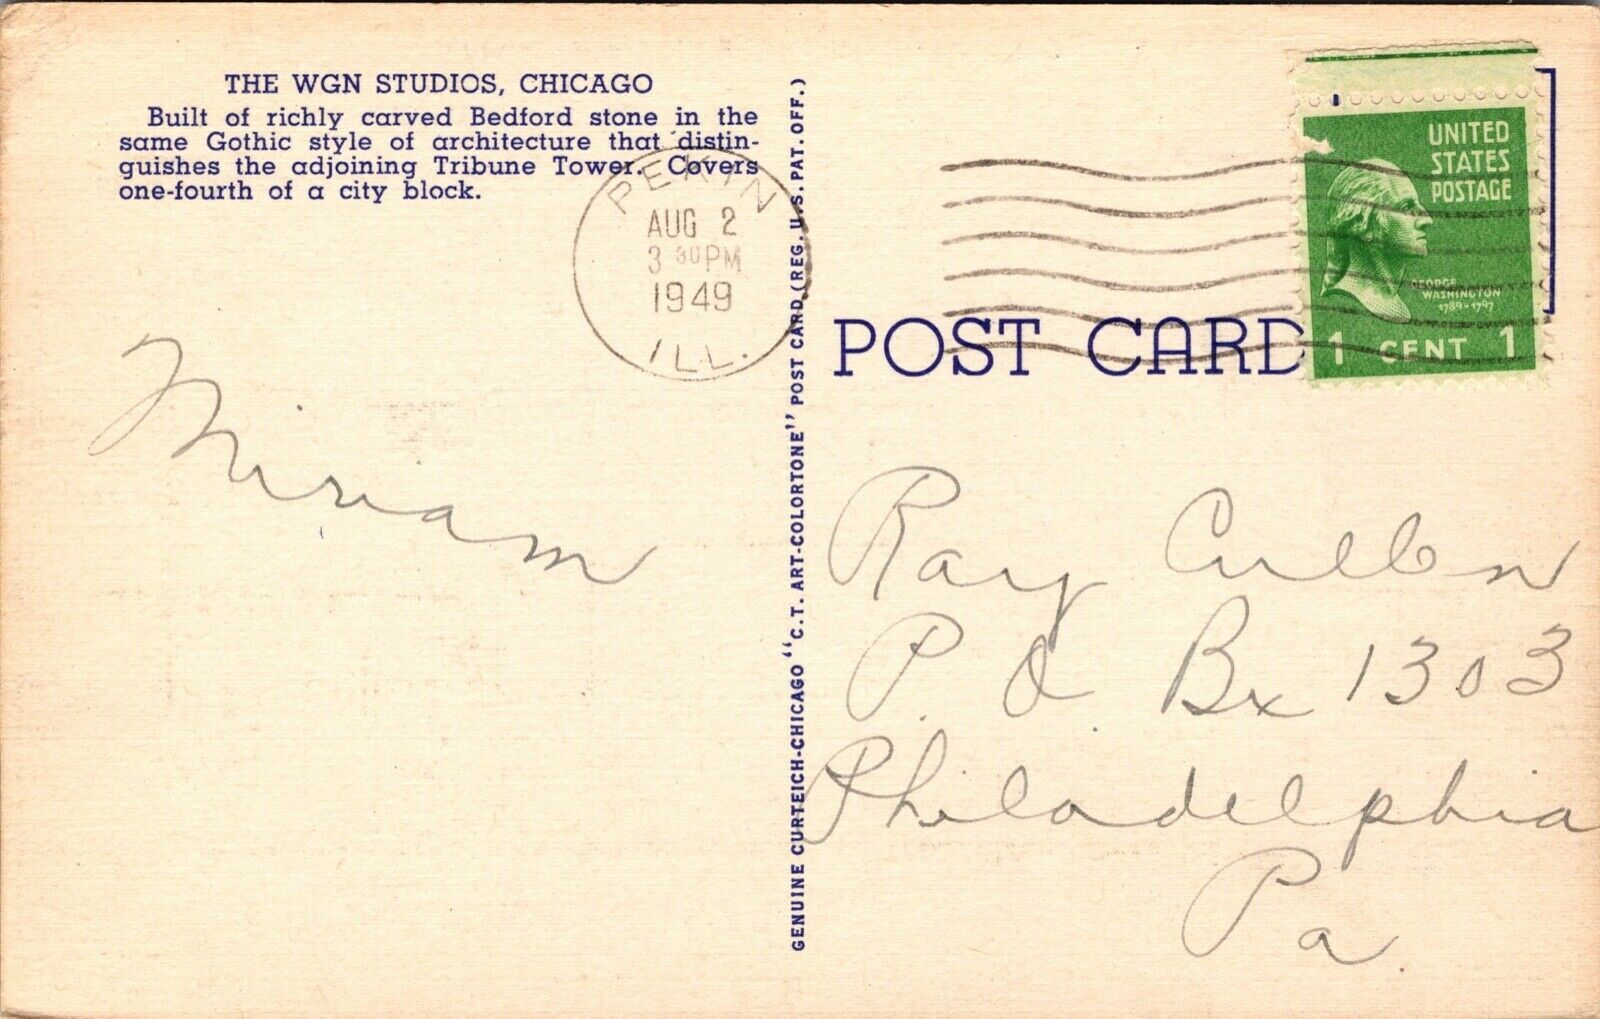 THE WGN STUDIOS, CHICAGO
Built of richly carved Bedford stone in the
same Gothic style of architecture that distin-
guishes the adjoining Tribune Tower. Covers
one-fourth of a city block.
PEKIN
AUG 2
3 30 PM
1949
ILL.
Miriam
GENUINE CURTEICH-CHICAGO "C.T. ART-COLORTONE" POST CARD (REG. U.S. PAT. OFF.)
POST CARD
UNITED
STATES
POSTAGE
GEORGE
WASHINGTON
1789-1797
1 CENT 1
Ray Cullen
P. O. Bx 1303
Philadelphia
Pa.